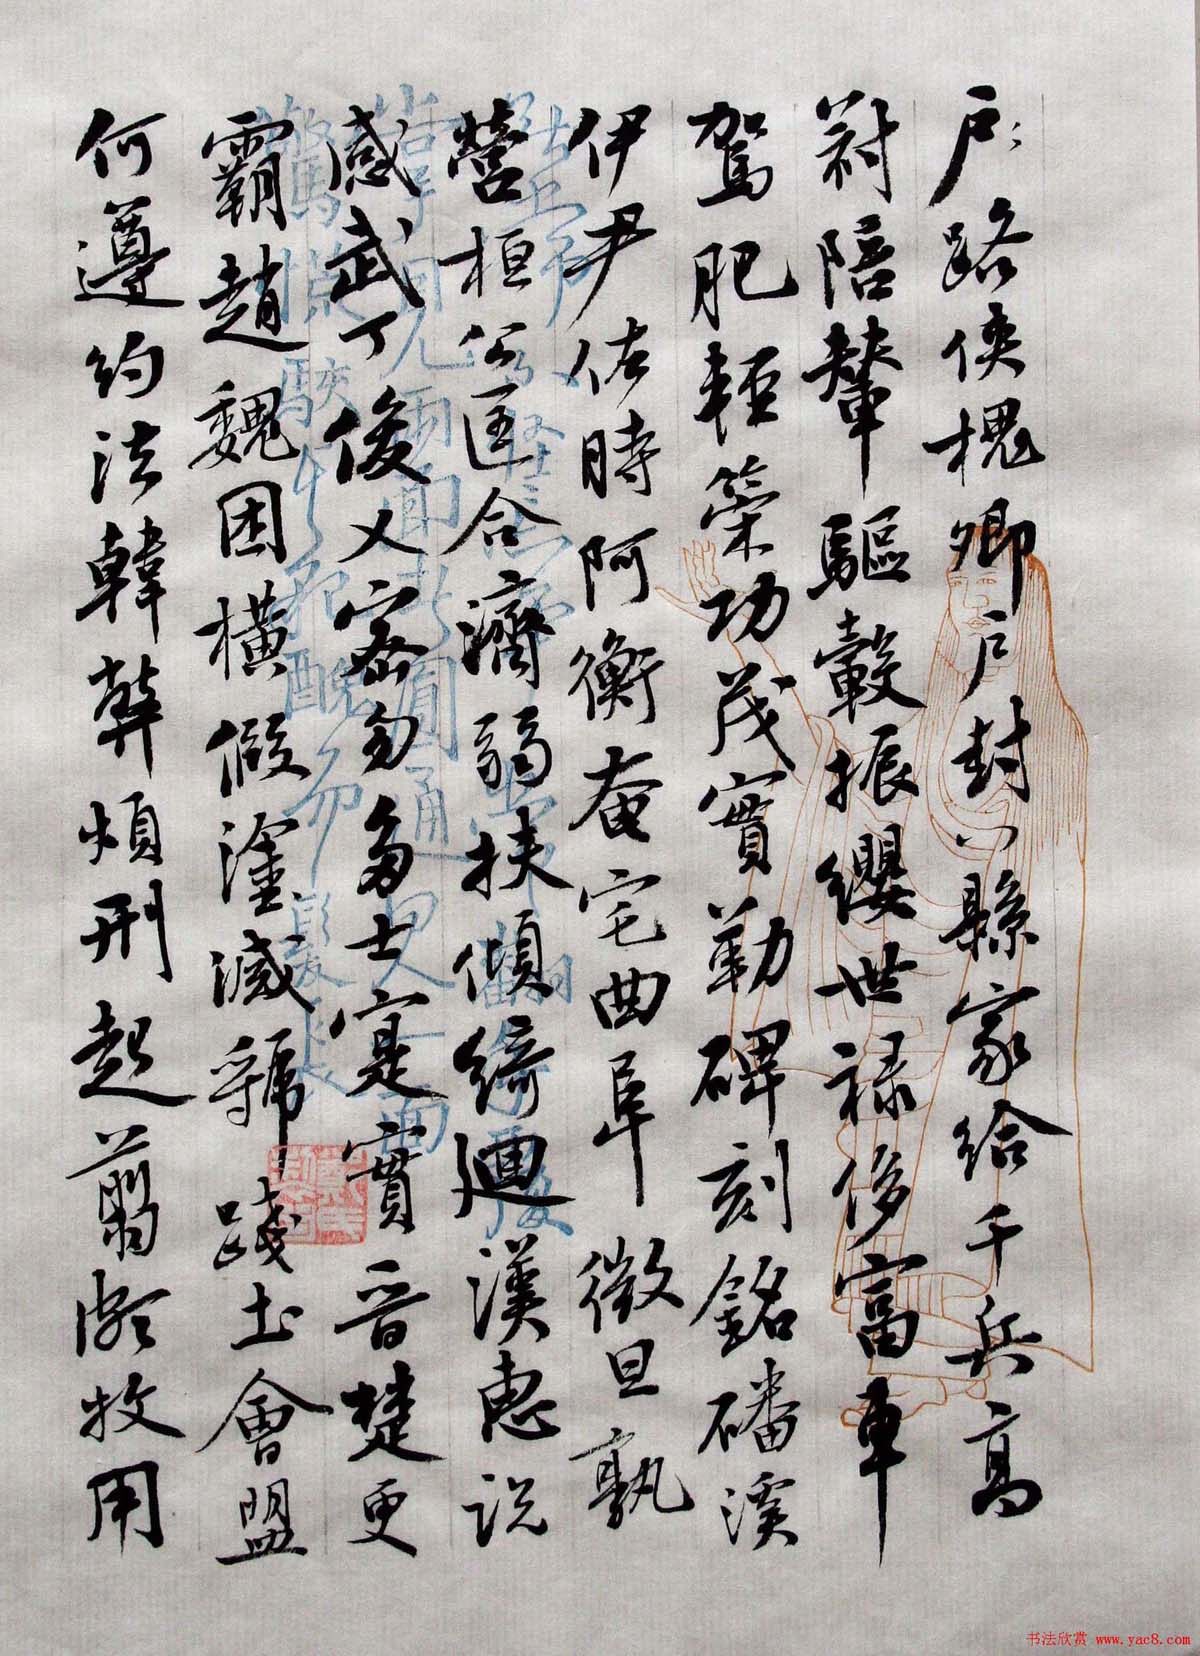 户路侠槐卿户封八縣家給千兵高
冠陪輦驅轂振纓世禄侈富車
駕肥輕策功茂實勒碑刻銘磻溪
伊尹佐時阿衡奄宅曲阜微旦孰
營桓公匡合濟弱扶傾綺迴漢惠説
感武丁俊乂密勿多士寔實晋楚更
霸趙魏困橫假塗滅虢踐土會盟
何遵約法韓弊煩刑起翦頗牧用
书法欣赏 www.yac8.com